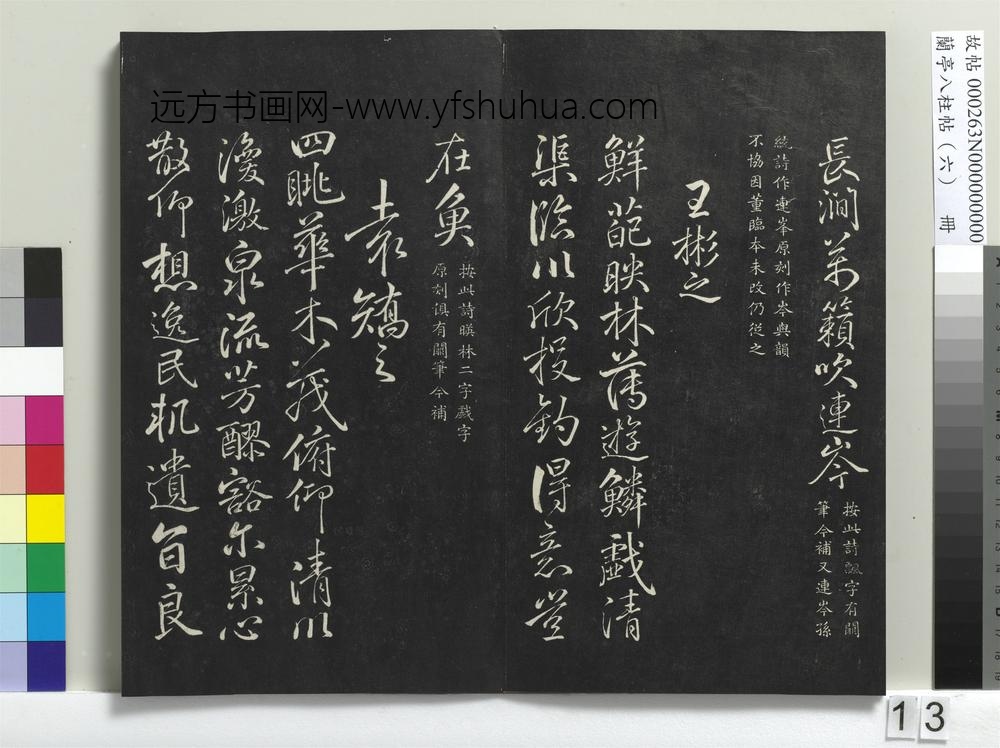 远方书画网-www.yfshuhua.com
故帖 000263N000000000
蘭亭八柱帖（六） 冊
長澗萬籟吹連岑
按此詩飄字有闕
筆今補又連岑孫
統詩作連峯原刻作岑與韻
不協因董臨本未改仍從之
王彬之
鮮葩映林薄遊鱗戲清
渠臨川欣投釣得意豈
在魚
按此詩暎林二字戲字
原刻俱有闕筆今補
袁嶠之
四眺華木茂俯仰清川
漫激泉流芳醪豁尔累心
散仰想逸民軌遺音良
13